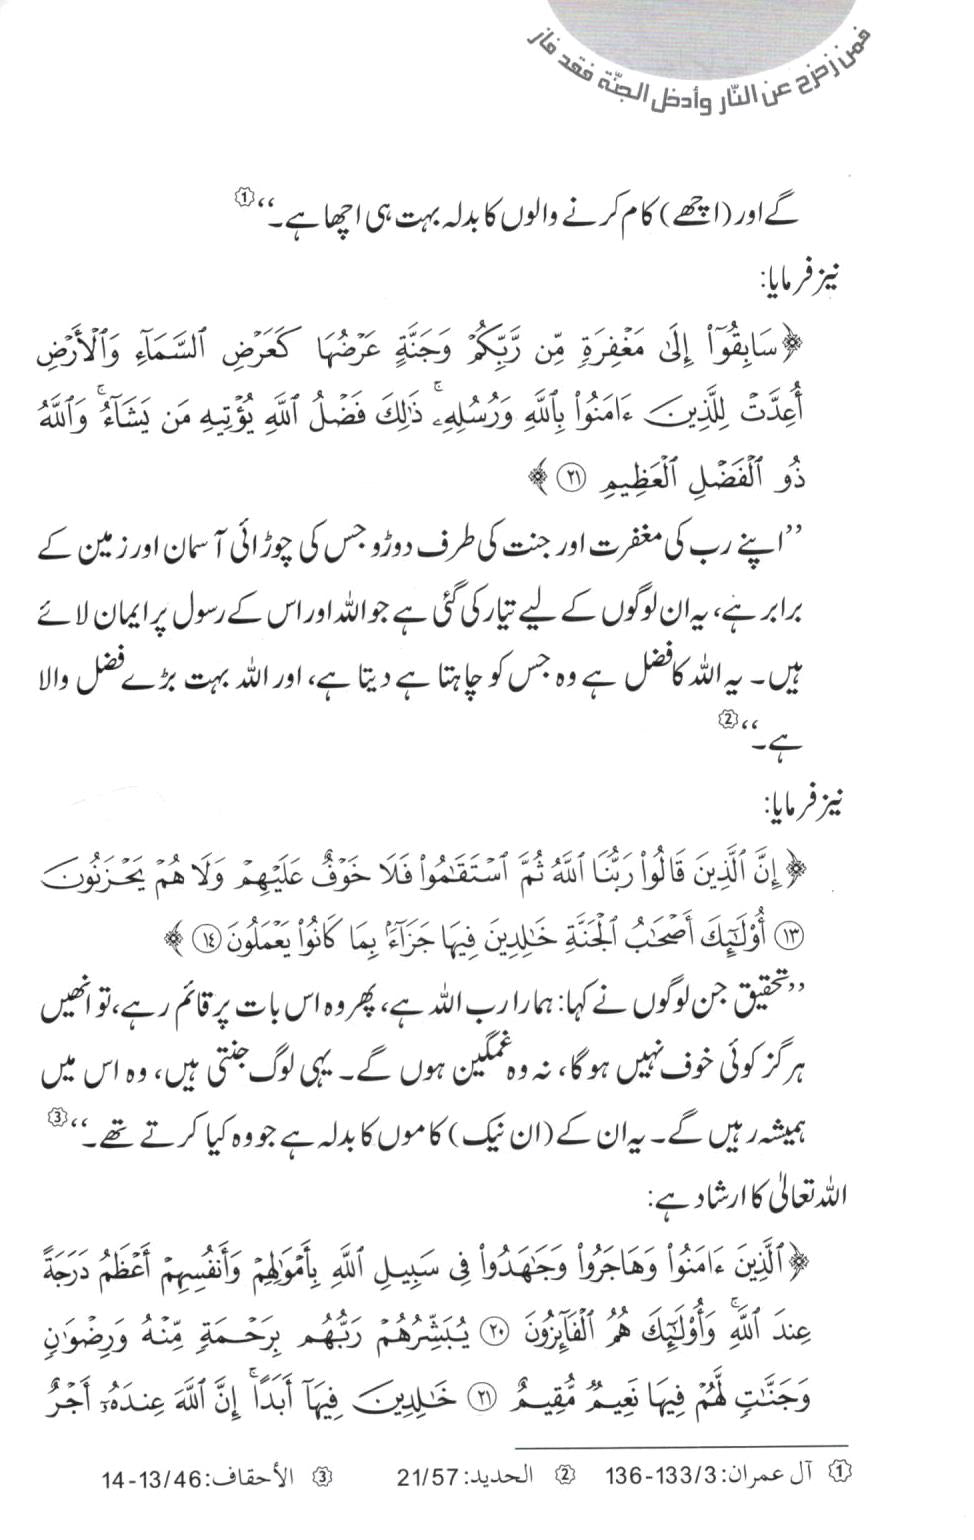 فمن زحزح عن النّار وأدخل الجنّة فقد فاز
گے اور (اچھے) کام کرنے والوں کا بدلہ بہت ہی اچھا ہے۔‘‘①
نیز فرمایا:
﴿سَابِقُوٓا۟ إِلَىٰ مَغْفِرَةٍ مِّن رَّبِّكُمْ وَجَنَّةٍ عَرْضُهَا كَعَرْضِ ٱلسَّمَآءِ وَٱلْأَرْضِ
أُعِدَّتْ لِلَّذِينَ ءَامَنُوا۟ بِٱللَّهِ وَرُسُلِهِۦ ۚ ذَٰلِكَ فَضْلُ ٱللَّهِ يُؤْتِيهِ مَن يَشَآءُ ۚ وَٱللَّهُ
ذُو ٱلْفَضْلِ ٱلْعَظِيمِ ﴿٢١﴾ ﴾
’’اپنے رب کی مغفرت اور جنت کی طرف دوڑو جس کی چوڑائی آسمان اور زمین کے
برابر ہے، یہ ان لوگوں کے لیے تیار کی گئی ہے جو اللہ اور اس کے رسول پر ایمان لائے
ہیں۔ یہ اللہ کا فضل ہے وہ جس کو چاہتا ہے دیتا ہے، اور اللہ بہت بڑے فضل والا
ہے۔‘‘②
نیز فرمایا:
﴿إِنَّ ٱلَّذِينَ قَالُوا۟ رَبُّنَا ٱللَّهُ ثُمَّ ٱسْتَقَـٰمُوا۟ فَلَا خَوْفٌ عَلَيْهِمْ وَلَا هُمْ يَحْزَنُونَ
﴿١٣﴾ أُو۟لَـٰٓئِكَ أَصْحَـٰبُ ٱلْجَنَّةِ خَـٰلِدِينَ فِيهَا جَزَآءًۢ بِمَا كَانُوا۟ يَعْمَلُونَ ﴿١٤﴾ ﴾
’’تحقیق جن لوگوں نے کہا: ہمارا رب اللہ ہے، پھر وہ اس بات پر قائم رہے، تو انھیں
ہرگز کوئی خوف نہیں ہوگا، نہ وہ غمگین ہوں گے۔ یہی لوگ جنتی ہیں، وہ اس میں
ہمیشہ رہیں گے۔ یہ ان کے (ان نیک) کاموں کا بدلہ ہے جو وہ کیا کرتے تھے۔‘‘③
اللہ تعالیٰ کا ارشاد ہے:
﴿ٱلَّذِينَ ءَامَنُوا۟ وَهَاجَرُوا۟ وَجَـٰهَدُوا۟ فِى سَبِيلِ ٱللَّهِ بِأَمْوَٰلِهِمْ وَأَنفُسِهِمْ أَعْظَمُ دَرَجَةً
عِندَ ٱللَّهِ ۚ وَأُو۟لَـٰٓئِكَ هُمُ ٱلْفَآئِزُونَ ﴿٢٠﴾ يُبَشِّرُهُمْ رَبُّهُم بِرَحْمَةٍ مِّنْهُ وَرِضْوَٰنٍ
وَجَنَّـٰتٍ لَّهُمْ فِيهَا نَعِيمٌ مُّقِيمٌ ﴿٢١﴾ خَـٰلِدِينَ فِيهَآ أَبَدًا ۚ إِنَّ ٱللَّهَ عِندَهُۥٓ أَجْرٌ
① آل عمران:133/3-136 ② الحديد:21/57 ③ الأحقاف:13/46-14